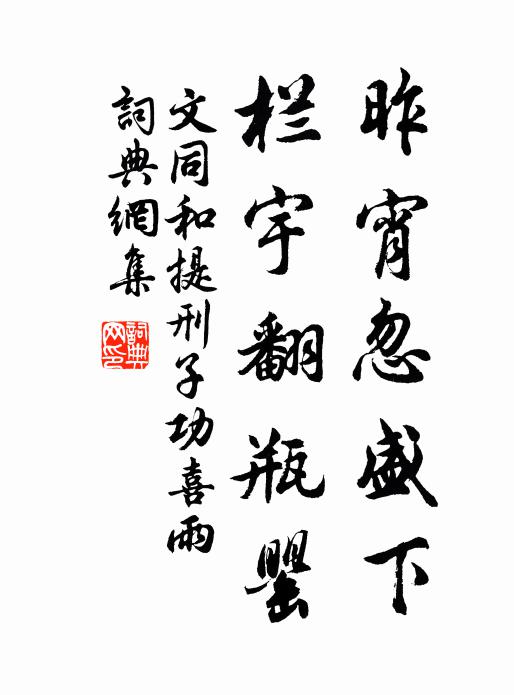 昨宵忽盛下
栏宇翻瓶罂
文同和提刑子功喜雨
詞典網集
詞典网印